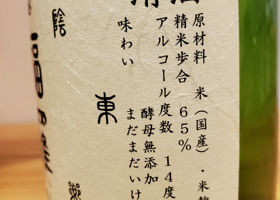 清酒
原材料 米（国産）・米麹
精米歩合 65%
アルコール度数 14度
味わい
酵母無添加
まだまだいけ
東
陰